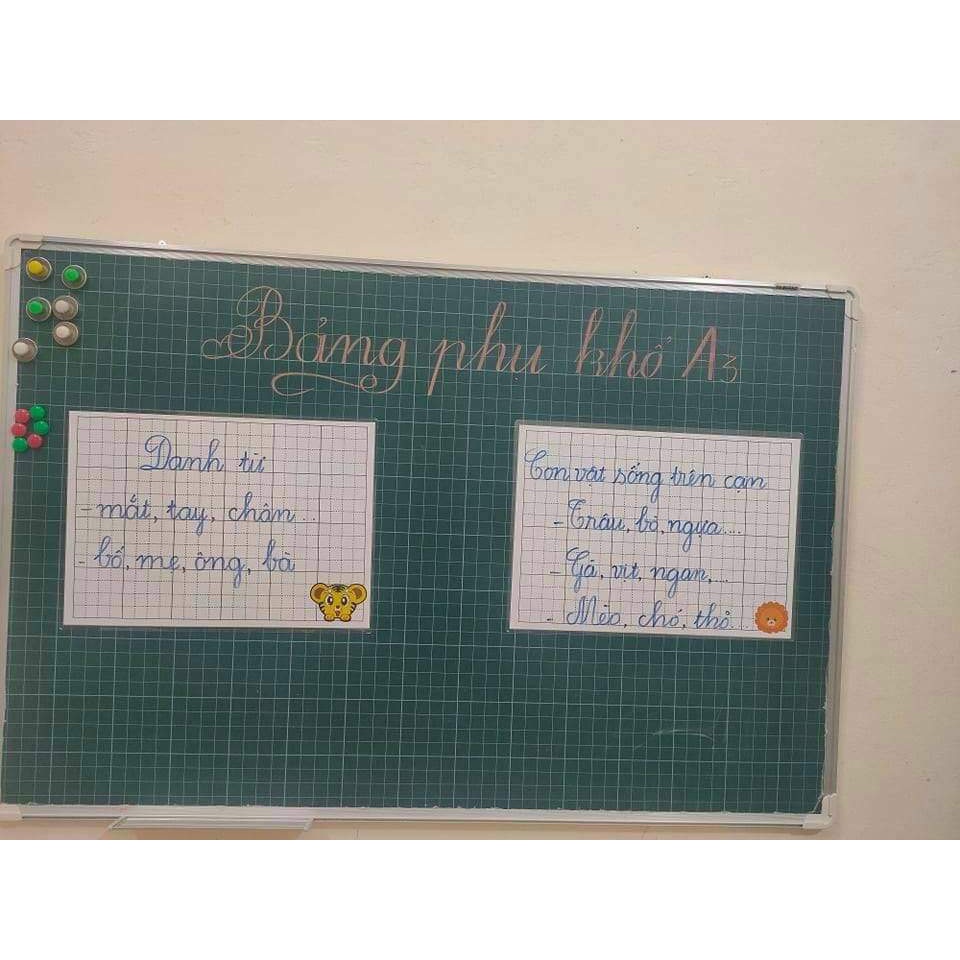 Bảng phu khổ A3
Danh từ
- mắt, tay, chân...
- bố, mẹ, ông, bà
Con vật sống trên cạn
- Trâu, bò, ngựa....
- Gà, vịt, ngan,...
- Mèo, chó, thỏ...